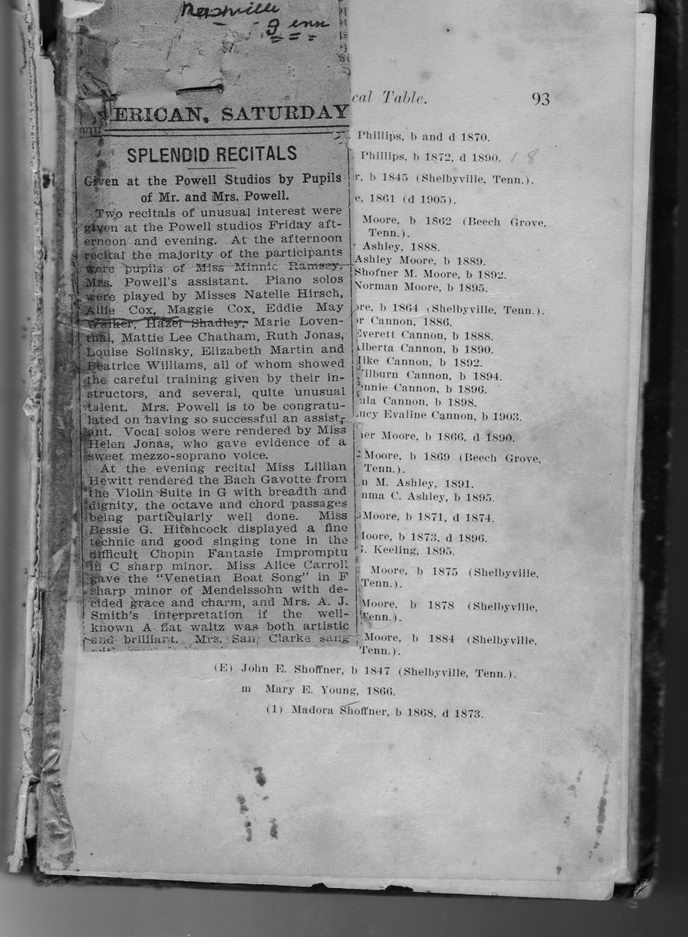 Nashville
Tenn
ERICAN, SATURDAY
SPLENDID RECITALS
Given at the Powell Studios by Pupils
of Mr. and Mrs. Powell.
Two recitals of unusual interest were
given at the Powell studios Friday aft-
ernoon and evening. At the afternoon
recital the majority of the participants
were pupils of Miss Minnie Ramsey,
Mrs. Powell's assistant. Piano solos
were played by Misses Natelle Hirsch,
Allie Cox, Maggie Cox, Eddie May
Walker, Hazel Shadley, Marie Loven-
thal, Mattie Lee Chatham, Ruth Jonas,
Louise Solinsky, Elizabeth Martin and
Beatrice Williams, all of whom showed
the careful training given by their in-
structors, and several, quite unusual
talent. Mrs. Powell is to be congratu-
lated on having so successful an assist-
ant. Vocal solos were rendered by Miss
Helen Jonas, who gave evidence of a
sweet mezzo-soprano voice.
At the evening recital Miss Lillian
Hewitt rendered the Bach Gavotte from
the Violin Suite in G with breadth and
dignity, the octave and chord passages
being particularly well done. Miss
Bessie G. Hitchcock displayed a fine
technic and good singing tone in the
difficult Chopin Fantasie Impromptu
in C sharp minor. Miss Alice Carroll
gave the "Venetian Boat Song" in F
sharp minor of Mendelssohn with de-
cided grace and charm, and Mrs. A. J.
Smith's interpretation if the well-
known A flat waltz was both artistic
and brilliant. Mrs. San Clarke sang
cal Table. 93
Phillips, b and d 1870.
Phillips, b 1872, d 1890. 18
r, b 1845 (Shelbyville, Tenn.).
e, 1861 (d 1905).
Moore, b 1862 (Beech Grove,
Tenn.).
Ashley, 1888.
Ashley Moore, b 1889.
Shofner M. Moore, b 1892.
Norman Moore, b 1895.
ore, b 1864 (Shelbyville, Tenn.).
or Cannon, 1886.
Everett Cannon, b 1888.
Alberta Cannon, b 1890.
Mike Cannon, b 1892.
ilburn Cannon, b 1894.
nnie Cannon, b 1896.
ula Cannon, b 1898.
ucy Evaline Cannon, b 1903.
er Moore, b 1866, d 1890.
Moore, b 1869 (Beech Grove,
Tenn.).
n M. Ashley, 1891.
nma C. Ashley, b 1895.
Moore, b 1871, d 1874.
Moore, b 1873, d 1896.
. Keeling, 1895.
Moore, b 1875 (Shelbyville,
Tenn.).
Moore, b 1878 (Shelbyville,
Tenn.).
Moore, b 1884 (Shelbyville,
Tenn.).
(E) John E. Shoffner, b 1847 (Shelbyville, Tenn.).
m Mary E. Young, 1866.
(1) Madora Shoffner, b 1868, d 1873.